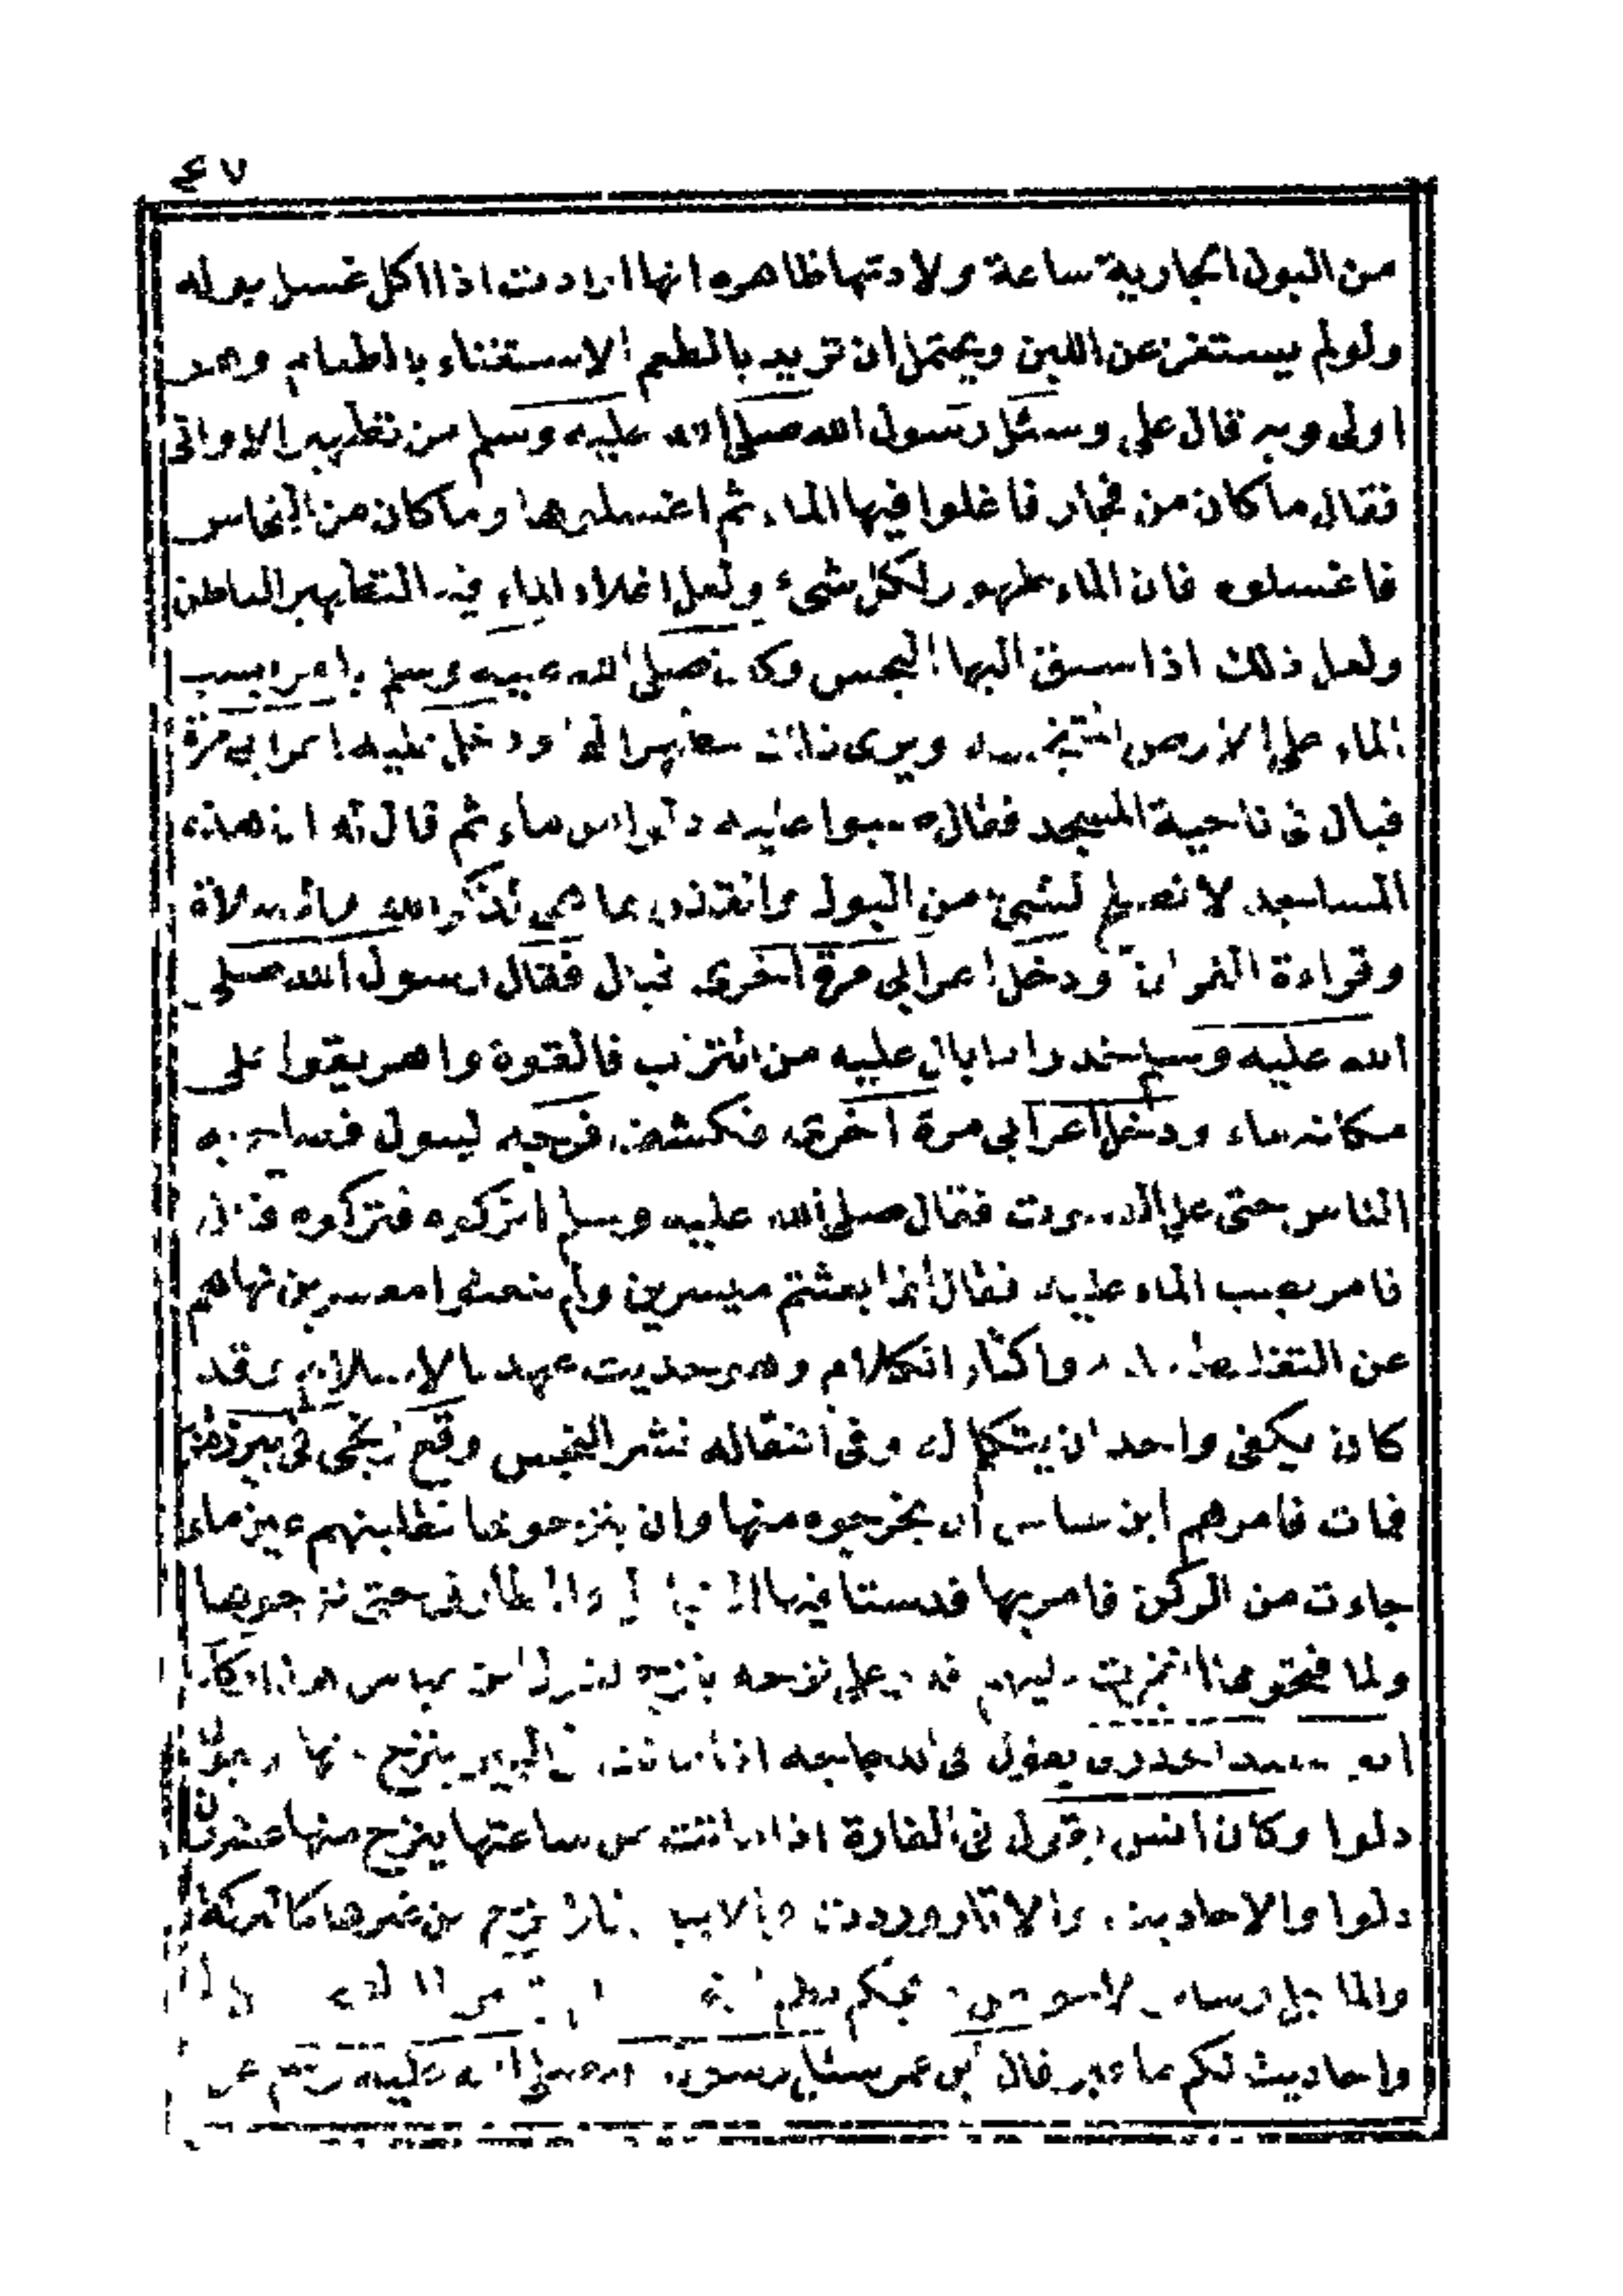 ٤٧
من البول الجارية ساعة ولادتها ظاهره انها ارادت اذا اكل غسل بوله
ولو لم يستغن عن اللبن ويحتمل ان تريد بالطعم الاستغناء بالطعام وهو
اولى وبه قال علي وسئل رسول الله صلى الله عليه وسلم من تطهير الاواني
فقال ما كان من فخار فاغلوا فيها الماء ثم اغسلوها وما كان من النحاس
فاغسلوه فان الماء طهور لكل شيء ولعل اغلاء الماء فيه التطهير الباطن
ولعل ذلك اذا سبق اليها النجس وكان صلى الله عليه وسلم يامر بصب
الماء على الارض ويرى ذلك تطهيرا لها ودخل عليه اعرابي مرة
فبال في ناحية المسجد فقال صبوا عليه دلوا من ماء ثم قال له ان هذه
المساجد لا تصلح لشيء من البول والقذر انما هي لذكر الله والصلاة
وقراءة القران ودخل اعرابي مرة اخرى فبال فقال رسول الله صلى
الله عليه وسلم خذوا ما بال عليه من التراب فالقوه واهريقوا على
مكانه ماء ودخل اعرابي مرة اخرى فكشف فرجه ليبول فصاح به
الناس حتى علا الصوت فقال صلى الله عليه وسلم اتركوه فتركوه فبال
فامر بصب الماء عليه فقال انما بعثتم ميسرين ولم تبعثوا معسرين نهاهم
عن التغليظ واكثار الكلام وهو حديث عهد بالاسلام وقد
كان يكفي واحد ان يتكلم له وفي انتقاله نشر النجس وقع زنجي في بير زمزم
فمات فامرهم ابن عباس ان يخرجوه منها وان ينزحوها فغلبتهم عين ماء
جاءت من الركن فامر بها فدست فيها القباطي والمطارف حتى نزحوها
ولما فتحوها انفجرت عليهم على نزحه ابن عباس هذا وكان
ابو سعيد الخدري يقول في الدجاجة اذا ماتت في البير ينزح منها اربعون
دلوا وكان انس يقول في الفارة اذا ماتت من ساعتها ينزح منها عشرون
دلوا والاحاديث والاثار وردت في الابيار نزح من غيرها كالبركة
والماجل
واحاديث لكم ما غبر قال ابن عمر سئل رسول الله صلى الله عليه وسلم عن